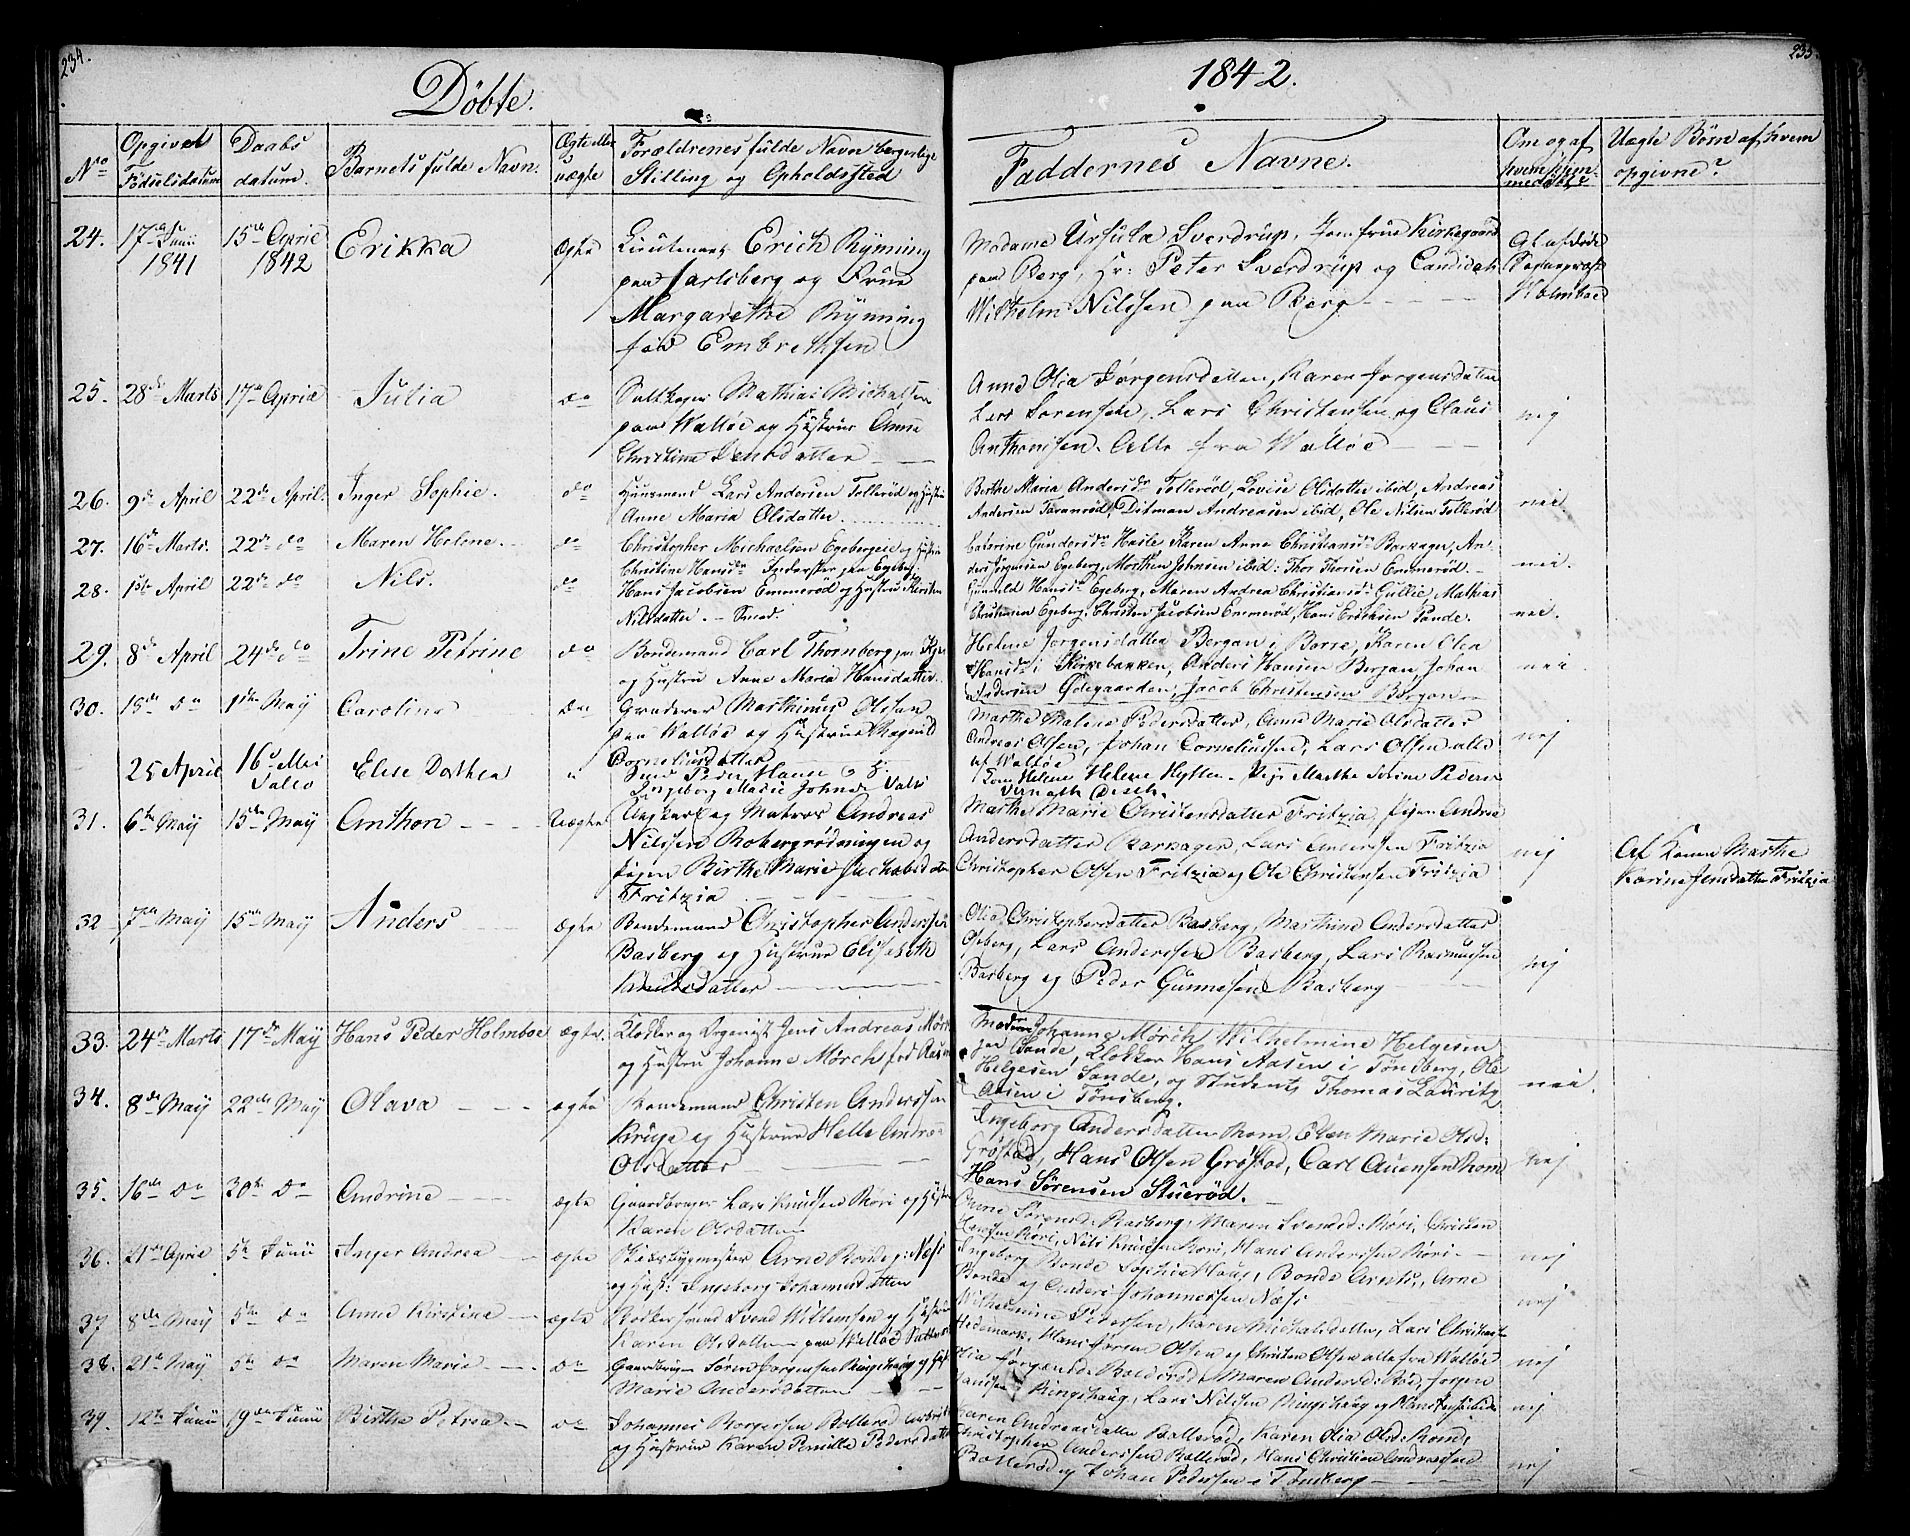 234.
Döbte.
1842.
235.
No
Opgivet Födselsdatum
Daabs datum.
Barnets fulde Navn.
Ægte eller uægte
Forældrenes fulde Navn borgerlige Stilling og Opholdssted
Faddernes Navne.
Om og af
Uægte Börn af hvem opgivne?
24. 17de Junii 1841 15de April 1842 Erikka Ægte
Lieutenant Erich Rÿnning
paa Jarlsberg og Frue
Margarethe Rÿnning
föd Embrethsen
Madame Ursula Sverdrup, Jomfrue Kirkegaard
paa Berg, Hr: Peter Sverdrup og Candidat
Wilhelm Nilssen paa Berg
Sognepræst
Holmboe
25. 28de Marts 17de April Julia do
Mathias Michelsen
paa Walløe og Hustrue Anne
Christine Jensdatter
Anne Olia Jørgensdatter, Karen Jørgensdatter
Lars Sørensen, Lars Christensen og Claus
Anthonisen. Alle fra Walløe
nej
26. 9de April 22de April. Inger Sophie. do
Huusmand Lars Andersen Tollerød og Hustru
Anne Maria Olsdatter.
Berthe Maria Andersdr Tollerød, Lovise Olsdatter ibid, Andreas
Andersen Taranrød, Ditman Andreasen ibid, Ole Nilsen Tollerød
nei
27. 16de Marts. 22de do Maren Helene. do
Christopher Michaelsen Egebergeie og Hustru
Christine Hansdr Inderster paa Egeberg.
Catrine Gundersdr Hasle Karen Anne Christiansdr Barkager, An-
ders Jørgensen Egeberg Morthen Johnsen ibid: Thor Thorsen Emmerød.
nei.
28. 1ste April 22de do Nils. do
Hans Jacobsen Emmerød og Hustru Kersten
Nilsdatter. - Smed.
Gunild Hansdr Egeberg, Maren Andrea Christiansdr Gullie, Mathias
Christensen Egeberg, Christen Jacobsen Emmerød, Hans Erichsen Sande.
nei.
29. 8de April 24de do Trine Petrine do
Bondemand Carl Thornberg
og Hustru Anne Maria Hansdatter.
Helene Jørgensdatter Bergan i Borre, Karen Olea
Hansdr i Kirkebakken, Anders Hansen Bergan, Johan
Andersen Ødegaarden, Jacob Christensen Bergan
nei
30. 15de do 1ste Maÿ Caroline do
Marthinus Olsen
paa Walløe og Hustrue Ragnild
Corneliusdatter
Marthe Malene Pedersdatter, Anne Marie Olsdatter
Andreas Olsen, Johan Corneliussen, Lars Olsen alle
af Walløe
nej
25 April 16 Mai Valø Elise Dorthea
Peder Hansen
Ingeborg Marie Johnsd Valø
Helene Marthe Sirine Peders
31. 6te Maÿ 15de Maÿ Anthon Uægte
Ungkarl og Matros Andreas
Nilssen Robergrødningen og
Pigen Birthe Marie Jachobsdatter
Fritzia
Marthe Marie Christensdatter Fritzia, Pigen Andrea
Andersdatter Barkager, Lars Andersen Fritzia
Christopher Olsen Fritzia og Ole Christensen Fritzia
nej
Af Konen Marthe
Karine Jensdatter Fritzia
32 7de Maÿ 15de Maÿ Anders Ægte
Bondemand Christopher Anderssen
Basberg og Hustrue Elisabeth
Knudsdatter
Olia Christophersdatter Basberg, Marthine Andersdatter
Oseberg, Lars Anderssen Basberg, Lars Rasmussen
Basberg og Peder Gunnesen Basberg
nej
33. 24de Marts 17de Maÿ Hans Peder Holmboe Ægte.
Klokker og Organist Jens Andreas Mørch
og Hustru Johanne Mørch fød Aasen
Madame Johanne Mørch Wilhelmine Helgesen
Sande, Klokker Hans Aasen i Tønsberg, Ole
Helgesen Sande, og Student Thomas Lauritz
Aasen i Tønsberg.
nei.
34. 8de Maÿ 22de Maÿ Olava ægte
Bondemand Christen Anderssen
Kruge og Hustrue Helle Andrea
Olsdatter
Ingeborg Andersdatter Rom, Elen Marie Olsd:
Grøstad, Hans Olsen Grøstad, Carl Auensen Rom
Hans Sørensen Stuerød.
nej
35. 16de do 30te do Andrine ægte
Gaardbruger Lars Knudsen Röri og Hustru
Karen Olsdatter
Anne Sörensd: Basberg, Maren Svensd: Röri, Christen
Hansen Röri, Nils Knudsen Röri, Hans Anderssen Röri
nej
36. 21de April 5te Junii Inger Andrea ægte
Skibsbygmester Arne Bonde
og Hust: Ingeborg Johannesdatter
Ingeborg Bonde Sophie Haug, Bonde Arntz, Arne
Bonde og Anders Johannessen Næs
nej
37 8de Maÿ 5te do Anne Kirstine ægte
Svend Willumsen og Hustrue
Karen Olsdatter paa Walløe
Wilhelmine Pedersen, Karen Michelsdatter, Lars Christensen
Hedemark, Hans Jörgen Olsen og Christen Olsen alle fra Walløe
nej
38. 21de Maÿ 5te do Maren Marie do
Gaardbruger Sören Jörgensen Ringshaug og Hust
Marie Andersdatter
Olia Jörgensd: Bollerød, Maren Andersd: Rød, Jörgen
Hansen Ringshaug, Lars Nilssen Ringshaug
nej
39. 12te Junii 19de Junii Birthe Petrea do
Johannes Borgersen Bollerød
og Hustrue Karen Pernille Pedersdatter
Karen Andreasdatter Bollerød, Karen Olia Olsd: Rom,
Christopher Anderssen Bollerød, Hans Christian Andreassen
Bollerød og Johan Pedersen i Tønsberg
nej